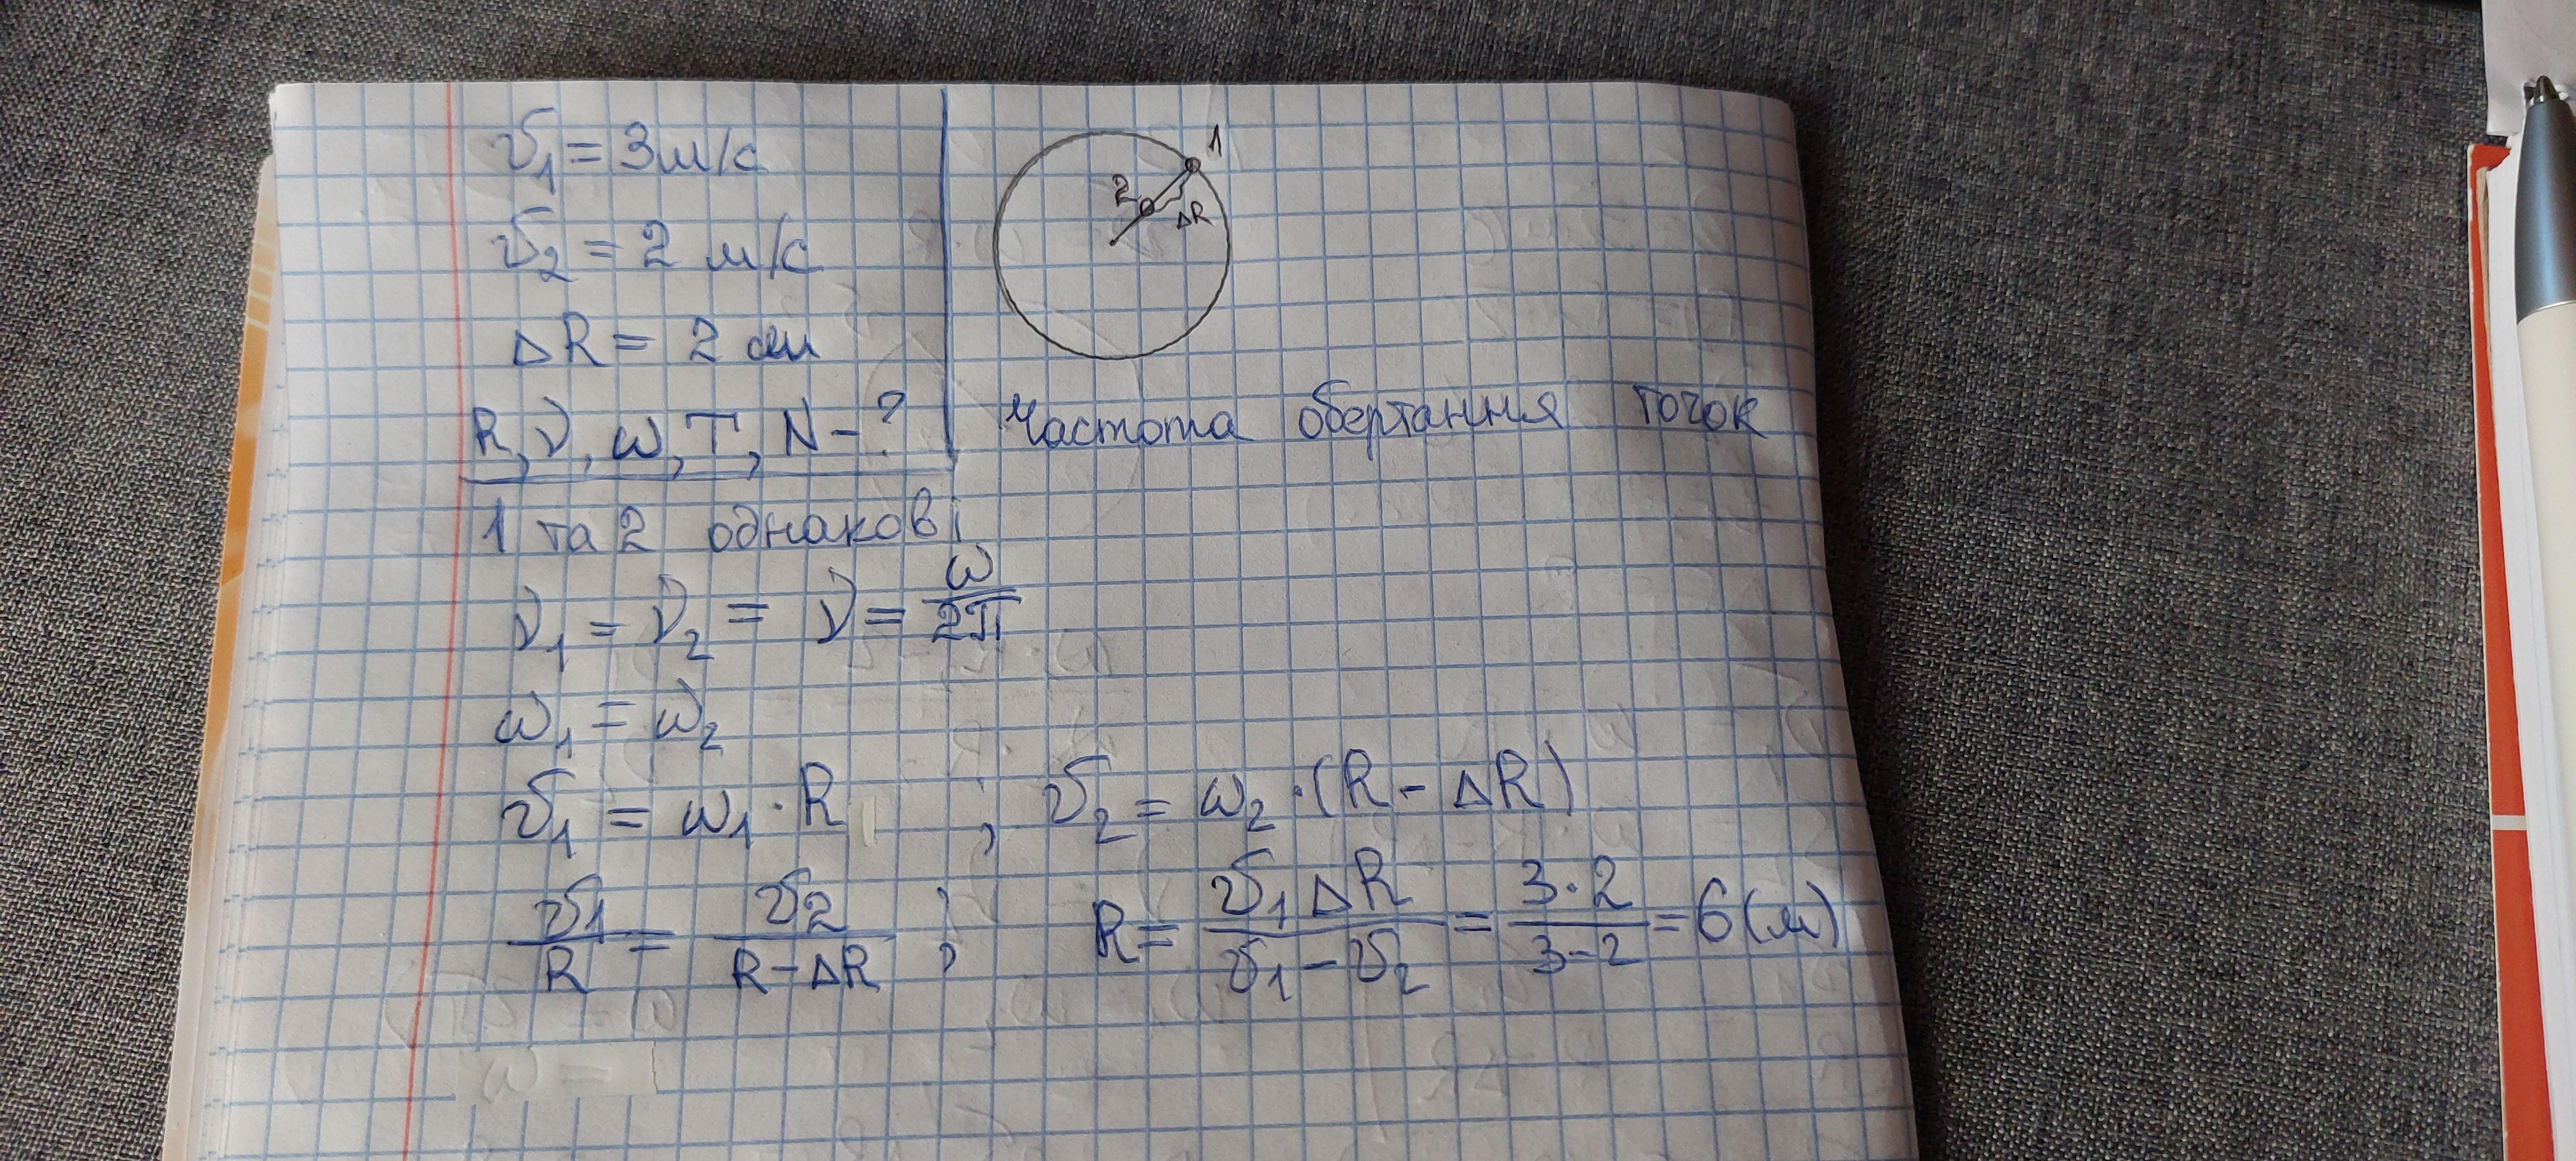 υ₁ = 3 м/с
υ₂ = 2 м/с
ΔR = 2 см
R, ν, ω, T, N - ?
1
2
ΔR
Частота обертання точок
1 та 2 однакові
ν₁ = ν₂ = ν = ω/2π
ω₁ = ω₂
υ₁ = ω₁ · R ; υ₂ = ω₂ · (R - ΔR)
υ₁/R = υ₂/(R - ΔR) ; R = υ₁ΔR/(υ₁ - υ₂) = 3·2/(3-2) = 6 (м)